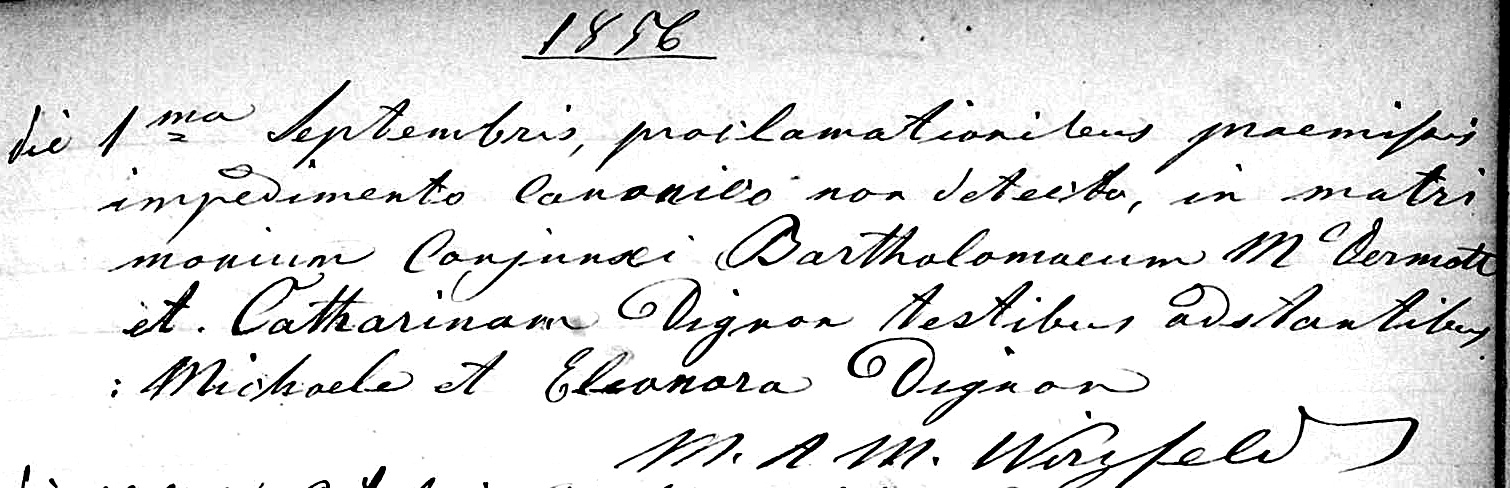 1856
die 1ma Septembris, proclamationibus praemissis
impedimento Canonico non detecto, in matri
monium Conjunxi Bartholomaeum McDermott
et. Catharinam Dignan testibus adstantibus
: Michaele et Eleonora Dignan
M. A M. Wirzfeld